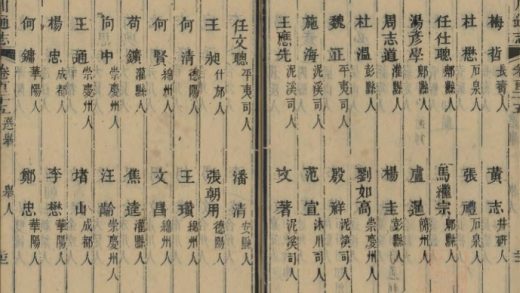 梅哲 長壽人 黃志 井研人
杜懋 石泉人 張禮 石泉人
任仕聰 郫縣人 馬繼宗 郫縣人
湯彥學 郫縣人 盧暹 簡州人
周志道 灌縣人 楊圭 彭縣人
杜溫 彭縣人 劉如高 崇慶州人
魏正 平夷司人 殷祥 泥溪司人
施海 泥溪司人 范宣 沐川司人
王應先 泥溪司人 文著 泥溪司人
任文聰 平夷司人 潘清 安縣人
何清 德陽人 張朝用 德陽人
王昶 什邡人 王瓚 綿州人
何賢 綿州人 文昌 綿州人
苟鑛 灌縣人 焦逵 灌縣人
向中 崇慶州人 汪 崇慶州人
王通 堵山 成都人
楊忠 成都人 李懋 華陽人
何鏞 華陽人 鄭忠 華陽人
川通志 卷百 五 選舉 舉人